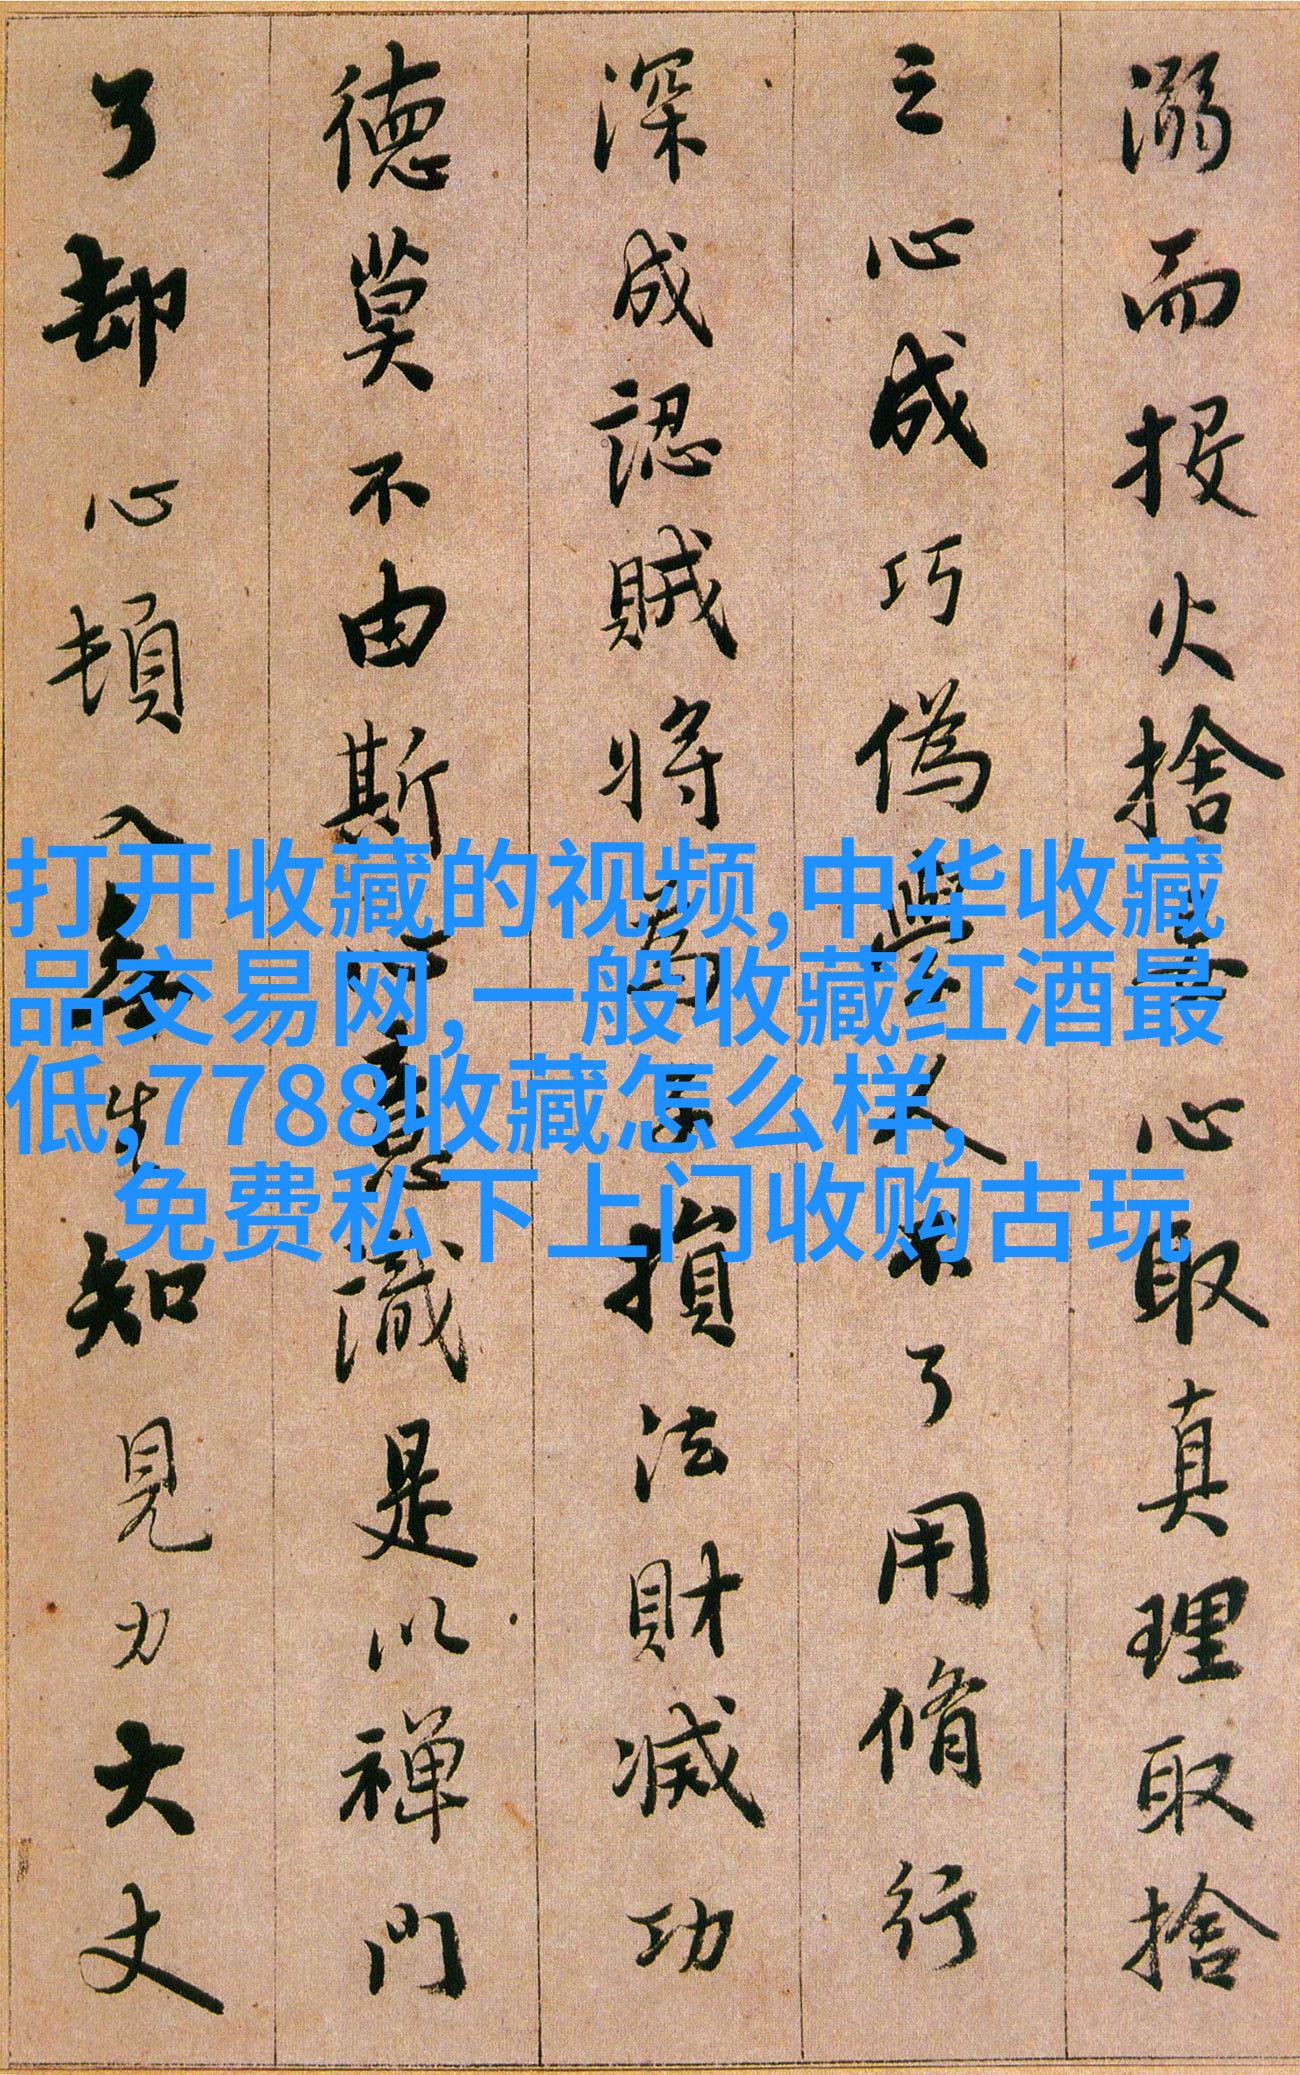 溺而投火捨妄心取真理取捨
之心成巧偽學人不了用脩行
深成認賊將為子損法財滅功
德莫不由斯心意識是以禪門
了却心頓入無生知見力大丈
打开收藏的视频,中华收藏
品交易网,一般收藏红酒最
低,7788收藏怎么样,
免费私下上门收购古玩